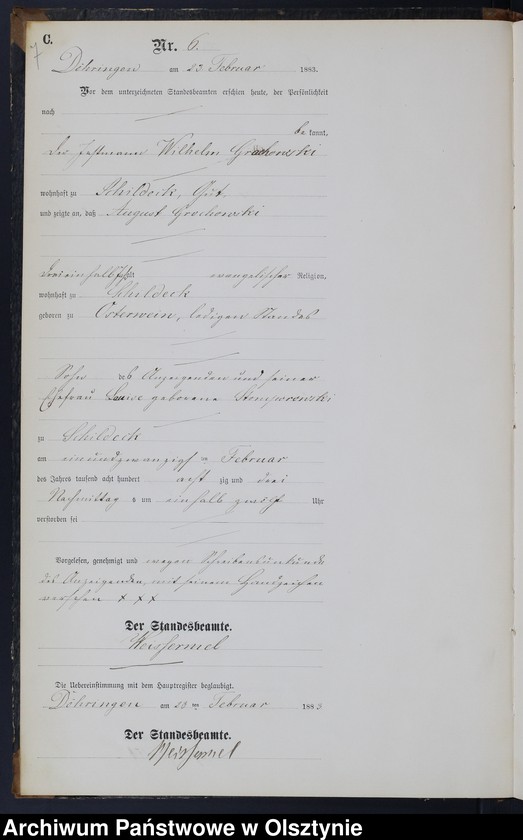 C.
7
Nr. 6.
Döhringen am 23 Februar 1883.
Vor dem unterzeichneten Standesbeamten erschien heute, der Persönlichkeit
nach
be kannt,
der Wilhelm Grochowski
wohnhaft zu Schildeck, Gut,
und zeigte an, daß August Grochowski
dreieinhalb Jahr evangelischer Religion,
wohnhaft zu Schildeck
geboren zu Osterwein, ledigen Standes
Sohn des Anzeigenden und seiner
Ehefrau geborene
zu Schildeck
am einundzwanzigsten Februar
des Jahres tausend acht hundert acht zig und drei
Nachmittag s um einhalb zwölf Uhr
verstorben sei
Vorgelesen, genehmigt und wegen Schreibensunkunde
des Anzeigenden, mit seinem Handzeichen
versehen + + +
Der Standesbeamte.
Weissermel
Die Uebereinstimmung mit dem Hauptregister beglaubigt.
Döhringen am 23 ten Februar 188 3
Der Standesbeamte.
Weissermel
Archiwum Państwowe w Olsztynie